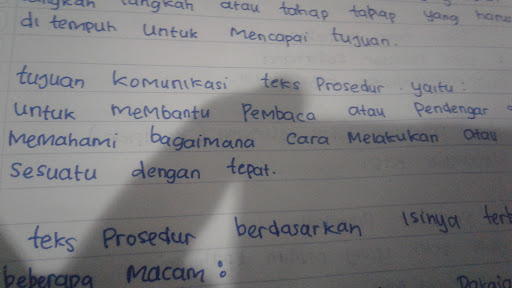 langkah atau tahap tahap yang harus
di tempuh untuk mencapai tujuan.
tujuan komunikasi teks Prosedur yaitu:
untuk membantu Pembaca atau Pendengar
memahami bagaimana cara Melakukan atau
Sesuatu dengan tepat.
teks Prosedur berdasarkan Isinya
beberapa macam: